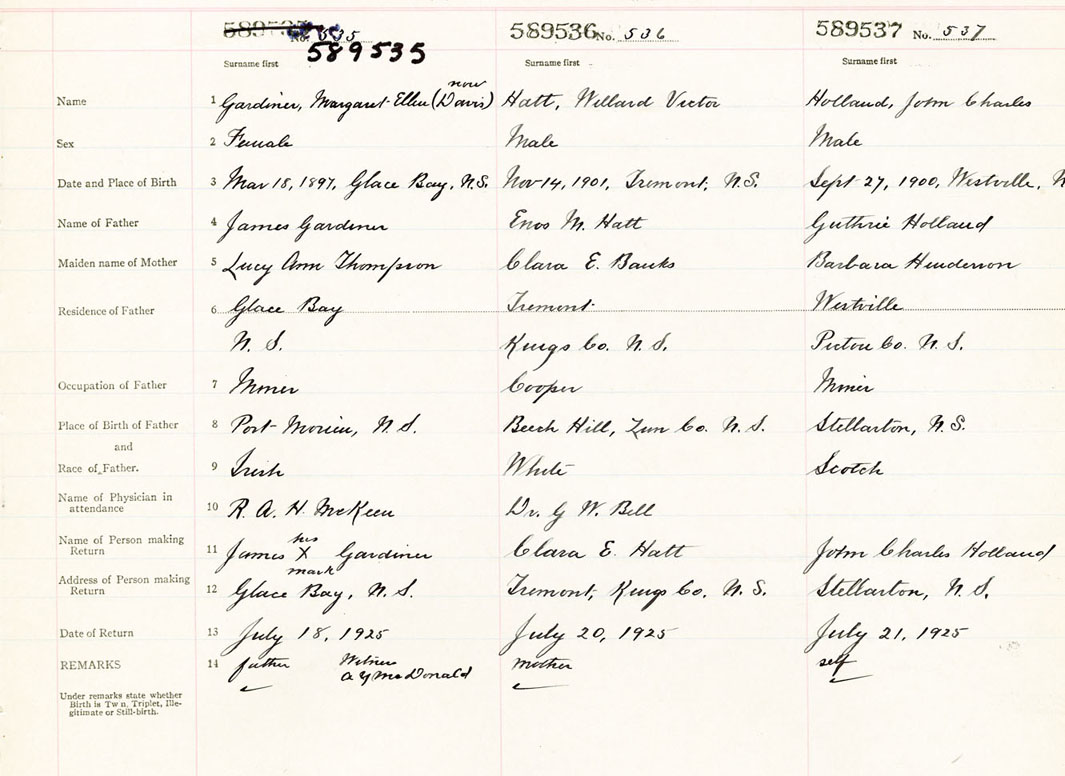 589535 No. 535 589536 No. 536 589537 No. 537
589535
Surname first Surname first Surname first
now
Name 1 Gardiner, Margaret Ellen (Davis) Hatt, Willard Victor Holland, John Charles
Sex 2 Female Male Male
Date and Place of Birth 3 Mar 18, 1897, Glace Bay, N.S. Nov 14, 1901, Tremont, N.S. Sept 27, 1900, Westville, N
Name of Father 4 James Gardiner Enos M. Hatt Guthrie Holland
Maiden name of Mother 5 Lucy Ann Thompson Clara E. Banks Barbara Henderson
Residence of Father 6 Glace Bay Tremont Westville
N. S. Kings Co. N. S. Pictou Co. N. S.
Occupation of Father 7 Miner Cooper Miner
Place of Birth of Father 8 Port Morien, N. S. Beech Hill, Lun Co. N. S. Stellarton, N.S.
and
Race of Father. 9 Irish White Scotch
Name of Physician in
attendance 10 R. A. H. McKeen Dr. G W. Bell
Name of Person making his
Return 11 James X Gardiner Clara E. Hatt John Charles Holland
mark
Address of Person making
Return 12 Glace Bay, N. S. Tremont, Kings Co. N. S. Stellarton, N. S.
Date of Return 13 July 18, 1925 July 20, 1925 July 21, 1925
REMARKS 14 father Witness mother self
A Y McDonald
Under remarks state whether
Birth is Twn, Triplet, Ille-
gitimate or Still-birth.